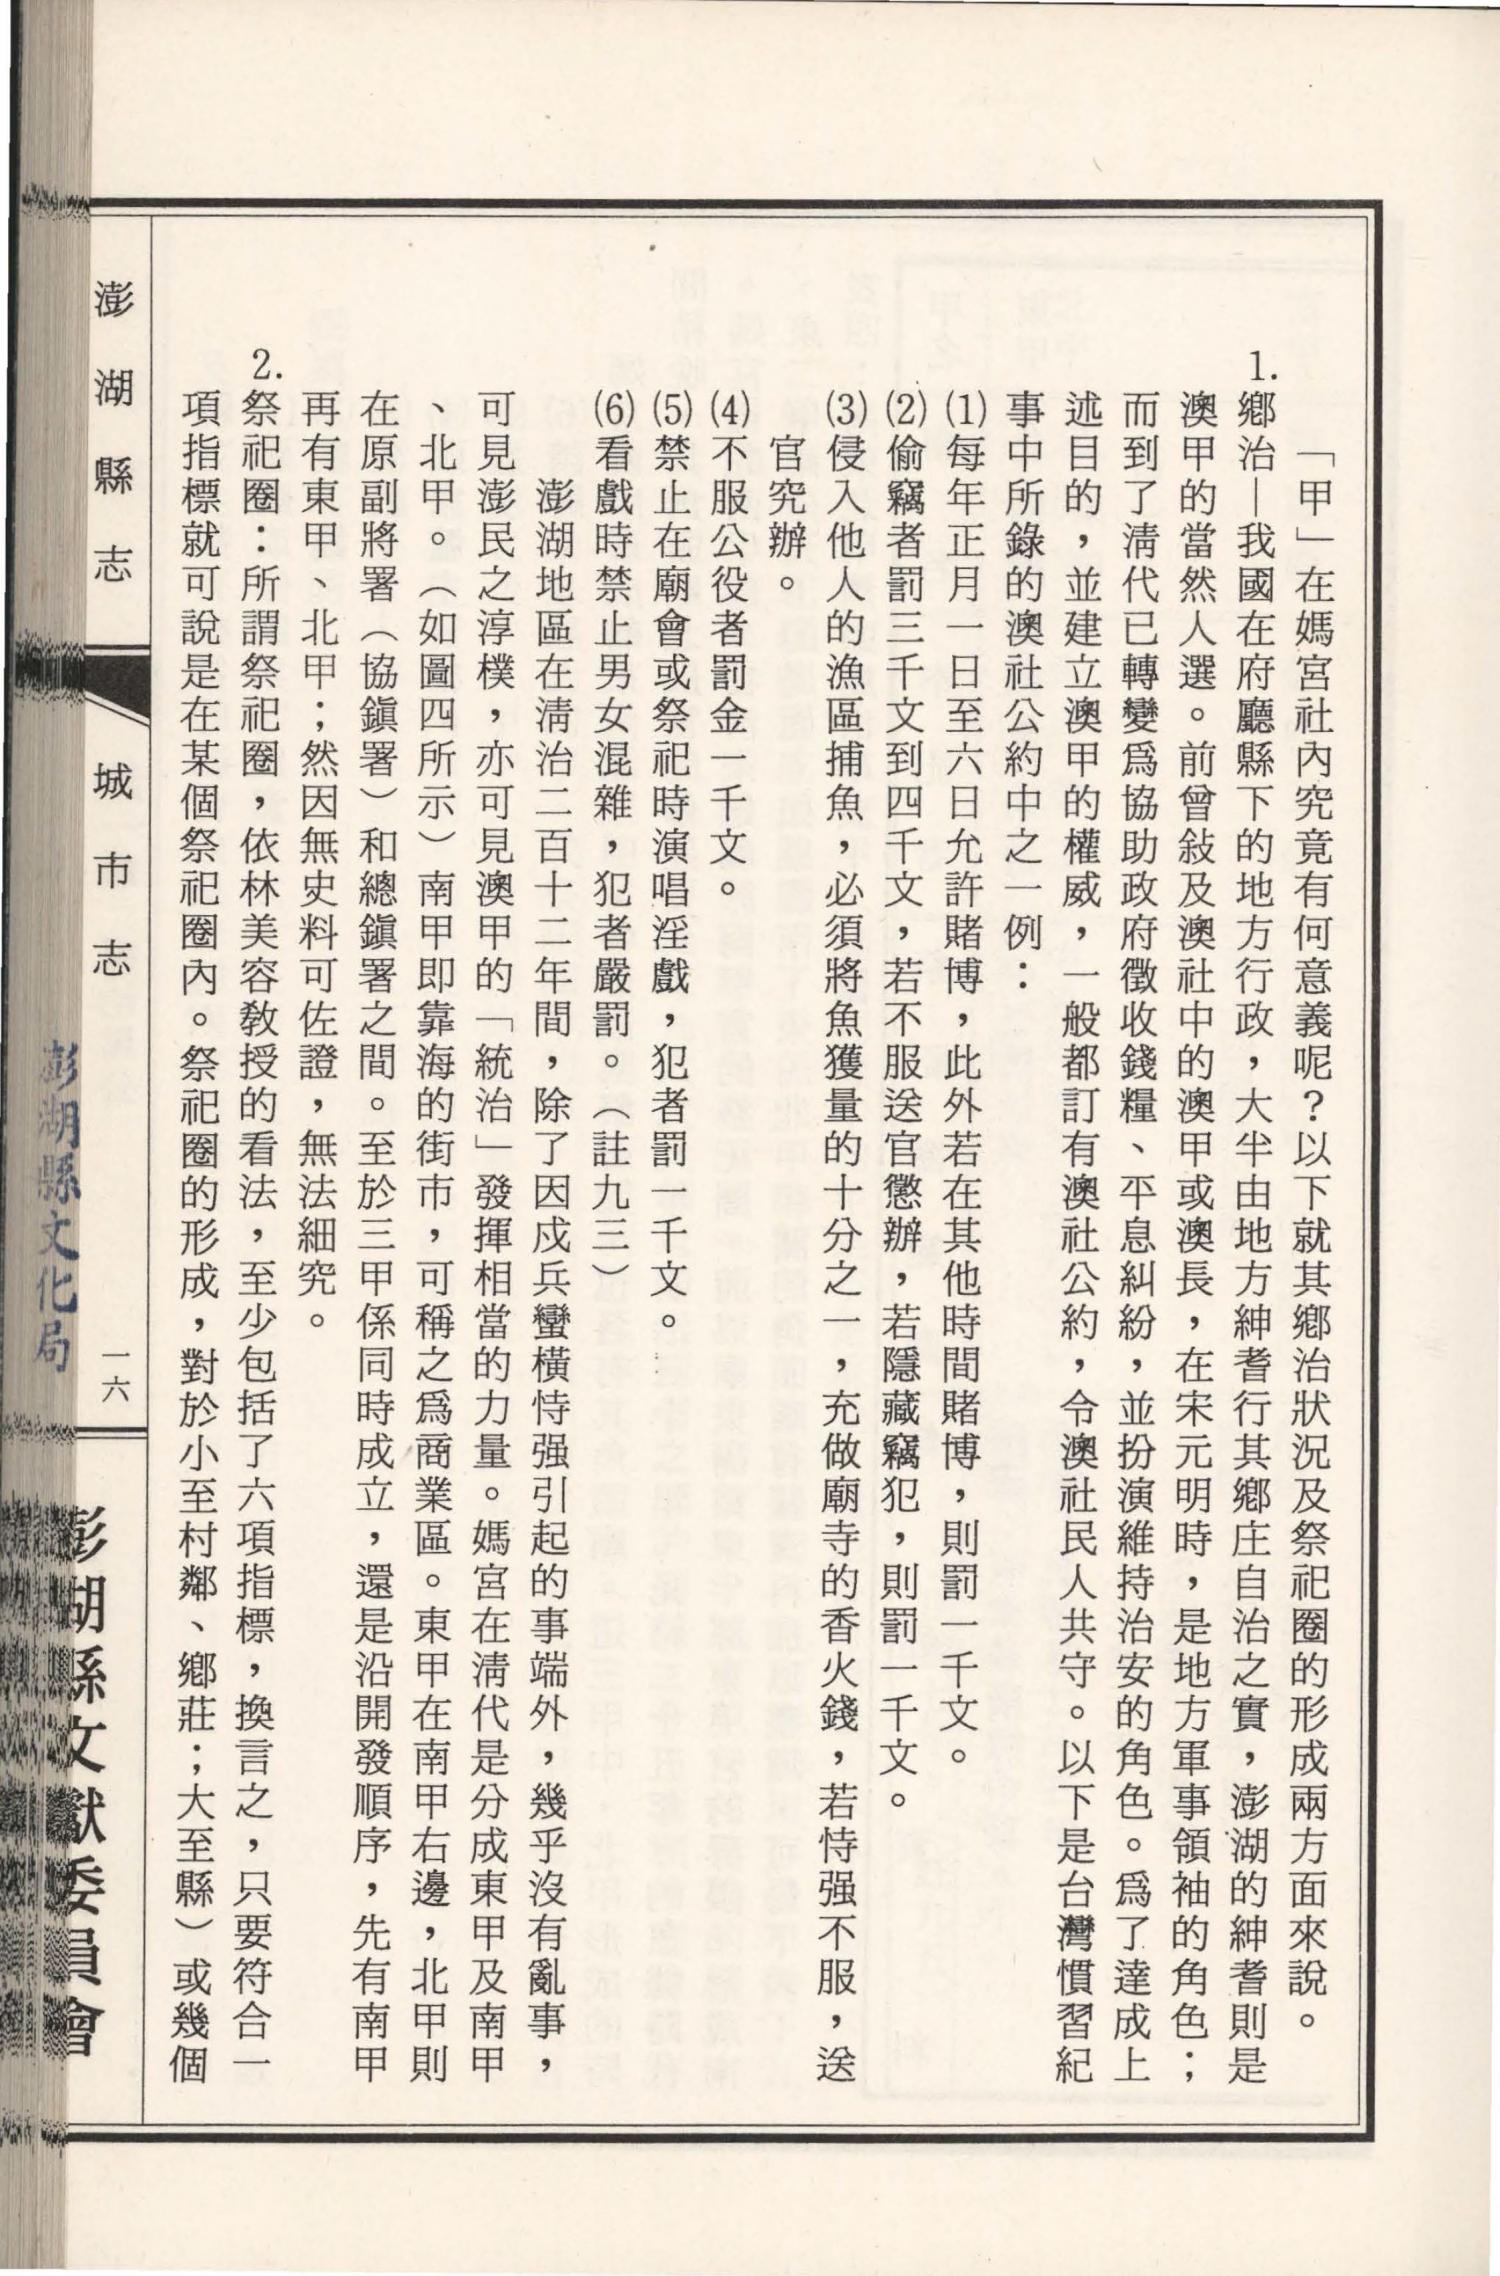 「甲」在媽宮社內究竟有何意義呢？以下就其鄉治狀況及祭祀圈的形成兩方面來說。
1.鄉治—我國在府廳縣下的地方行政，大半由地方紳耆行其鄉庄自治之實，澎湖的紳耆則是
澳甲的當然人選。前曾敍及澳社中的澳甲或澳長，在宋元明時，是地方軍事領袖的角色；
而到了淸代已轉變爲協助政府徵收錢糧、平息糾紛，並扮演維持治安的角色。爲了達成上
述目的，並建立澳甲的權威，一般都訂有澳社公約，令澳社民人共守。以下是台灣慣習紀
事中所錄的澳社公約中之一例：
⑴每年正月一日至六日允許賭博，此外若在其他時間賭博，則罰一千文。
⑵偷竊者罰三千文到四千文，若不服送官懲辦，若隱藏竊犯，則罰一千文。
⑶侵入他人的漁區捕魚，必須將魚獲量的十分之一，充做廟寺的香火錢，若恃强不服，送
官究辦。
⑷不服公役者罰金一千文。
⑸禁止在廟會或祭祀時演唱淫戲，犯者罰一千文。
⑹看戲時禁止男女混雜，犯者嚴罰。（註九三）
澎湖地區在淸治二百十二年間，除了因戍兵蠻橫恃强引起的事端外，幾乎沒有亂事，
可見澎民之淳樸，亦可見澳甲的「統治」發揮相當的力量。媽宮在淸代是分成東甲及南甲
、北甲。（如圖四所示）南甲即靠海的街市，可稱之爲商業區。東甲在南甲右邊，北甲則
在原副將署（協鎭署）和總鎭署之間。至於三甲係同時成立，還是沿開發順序，先有南甲
再有東甲、北甲；然因無史料可佐證，無法細究。
2.祭祀圈：所謂祭祀圈，依林美容敎授的看法，至少包括了六項指標，換言之，只要符合一
項指標就可說是在某個祭祀圈內。祭祀圈的形成，對於小至村鄰、鄉莊；大至縣）或幾個
澎湖縣志
城市志
一六
澎湖縣文獻委員會
澎湖縣文化局